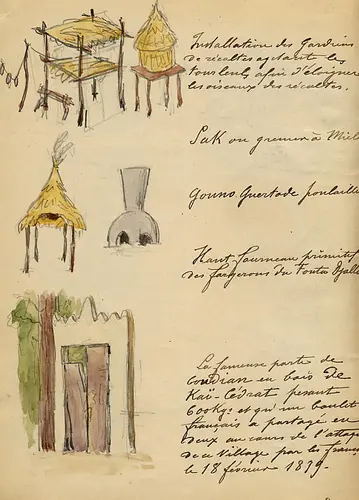 Installation des Gardiens
de récoltes agitant les
tous leurs afin d'éloigner
les oiseaux des récoltes.
Sak ou grenier à Mil
Gouno. Quertode poulaille
Haut fourneau primitif
des forgerons du Fouta Djallo
La fameuse porte de
Coudian en bois de
Kaï-Cédrat pesant
600 Kgs et qu'un boulet
français a partagé en
deux au cours de l'attaque
de ce Village par les França
le 18 février 1889.